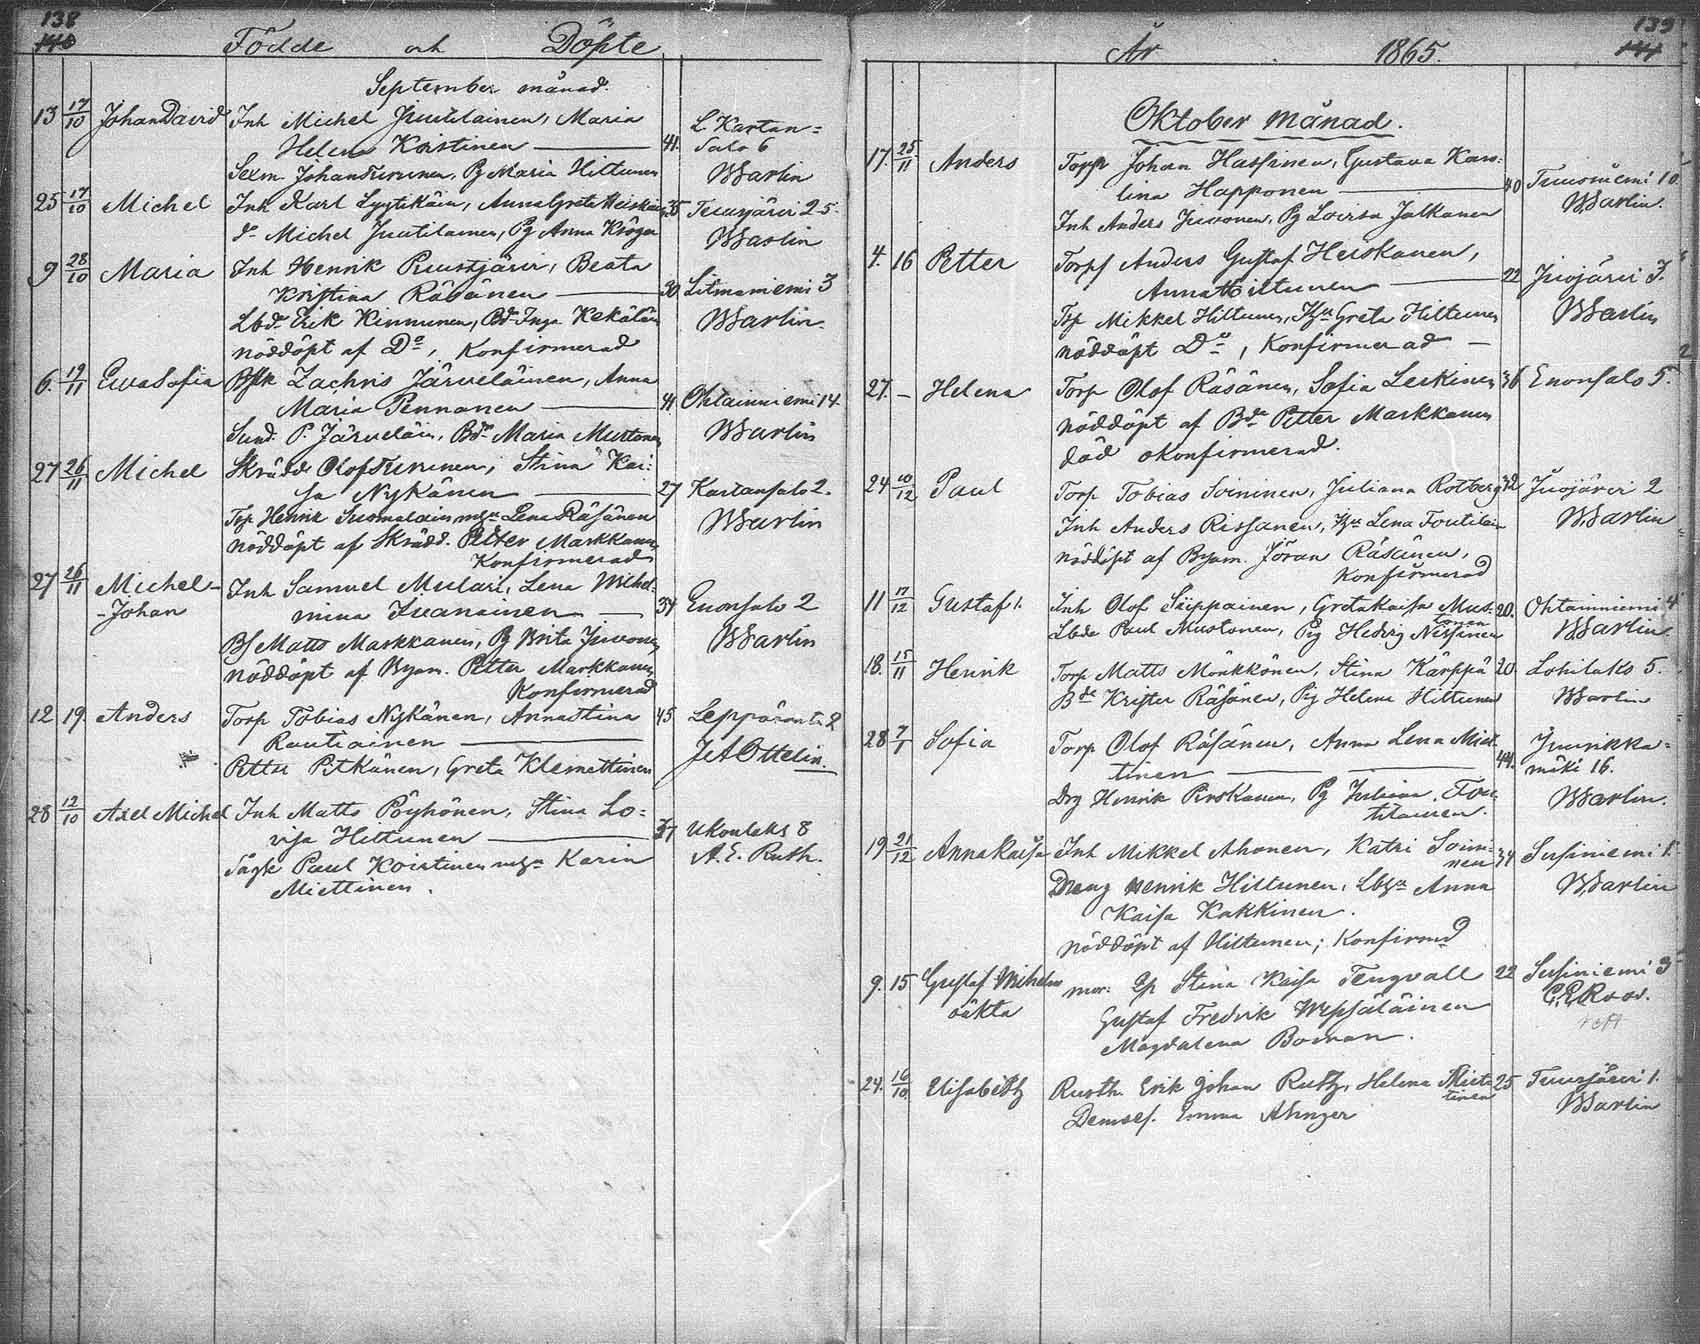 138
140
Födde och Döpte
September månad.
13 17/10 Johan David Inh Michel Juutilainen, Maria
Helena Koistinen 41. L Kartan=
salo 6
Sexm. Johan Turunen, Pg Maria Hiltunen Warlin
25 17/10 Michel Inh Karl Lyytikäin, Anna Greta Heiskan 35 Tuusjärvi 25.
do Michel Juutilainen, Pg Anna Kröger Warlin
9 28/10 Maria Inh Henrik Puustjärvi, Beata
Kristina Räsänen 30 Litmaniemi 3
Lbd. Erik Kinnunen, Bd. Inga Kekäläin Warlin.
nöddöpt af Do, Konfirmerad
6. 19/11 Eva Sofia Zachris Järveläinen, Anna
Maria Pennanen 41 Ohtaniemi 14.
P. Järveläin, Bd. Maria Mustonen Warlin
27 26/11 Michel Skrädd Olof Turunen, Stina Kai:
sa Nykänen 27 Kartansalo 2.
Tsp Henrik Suomalain m hu Lena Räsänen Warlin
nöddöpt af Skrädd. Petter Markkanen,
Konfirmerad
27 26/11 Michel-
-Johan Inh Samuel Mulari, Lena Wilhel-
mina Iivanainen 34 Enonsalo 2
Bs Matts Markkanen, Pg Brita Juvonen Warlin
nöddöpt af Byam. Petter Markkanen,
Konfirmerad
12 19. Anders Torp Tobias Nykänen, Anna Stina 45 Leppäranta 2
Rautiainen
Petter Pitkänen, Greta Klemettinen Ottelin.
28 12/10 Axel Michel Inh Matts Pöyhönen, Stina Lo=
visa Hiltunen 37 Ukonlaks 8
Paul Koistinen m hu Karin A. E. Ruth.
Miettinen.
139
141
År 1865.
Oktober månad.
17. 25/11 Anders Torp Johan Hassinen, Gustava Karo:
lina Happonen 40 Tuusniemi 10.
Inh Anders Juvonen, Pg Lovisa Jalkanen Warlin.
4. 16 Petter Torp Anders Gustaf Heiskanen,
Anna Hiltunen 22 Juojärvi 7.
Tsp Mikkel Hiltunen, Hu Greta Hiltunen Warlin
nöddöpt Do, Konfirmerad
27. – Helena Torp Olof Räsänen, Sofia Leskinen 36 Enonsalo 5.
nöddöpt af Bd. Petter Markkanen
död okonfirmerad.
24 10/12 Paul Torp Tobias Soininen, Juliana Rotberg 32 Juojärvi 2
Inh Anders Rissanen, Hu Lena Toutilain Warlin
nöddöpt af Byam. Jöran Räsänen,
Konfirmerad
11 17/12 Gustaf Inh Olof Säppainen, Greta Kaisa Mus-
tonen 20. Ohtaniemi 4
Lbde Paul Mustonen, Pig Hedvig Nissinen Warlin.
18. 15/11 Henrik Torp Matts Mönkkönen, Stina Kärppä 20 Lohilaks 5.
Bde Krister Räsänen, Pig Helena Hiltunen Warlin
28 7/1 Sofia Torp Olof Räsänen, Anna Lena Miet
tinen 44. Juurikka=
mäki 16.
Drg Henrik Pirskanen, Pg Juliana Tou
tilainen. Warlin.
19 21/12 Anna Kaisa Inh Mikkel Ahonen, Katri Soini-
nen 34 Susiniemi 1.
Dreng Henrik Hiltunen, Lbhu Anna Warlin
Kaisa Kakkinen.
nöddöpt af Hiltunen; Konfirmd
9. 15 Gustaf Wilhelm
oäkta mor: Stina Kaisa Tengvall 22 Susiniemi 3
Gustaf Fredrik Wepsäläinen Roos.
Magdalena Boman.
24. 16/10 Elisabeth Rusth. Erik Johan Ruth, Helena Miet
tinen 25 Tuusjärvi 1.
Demois. Emma Ahnger Warlin